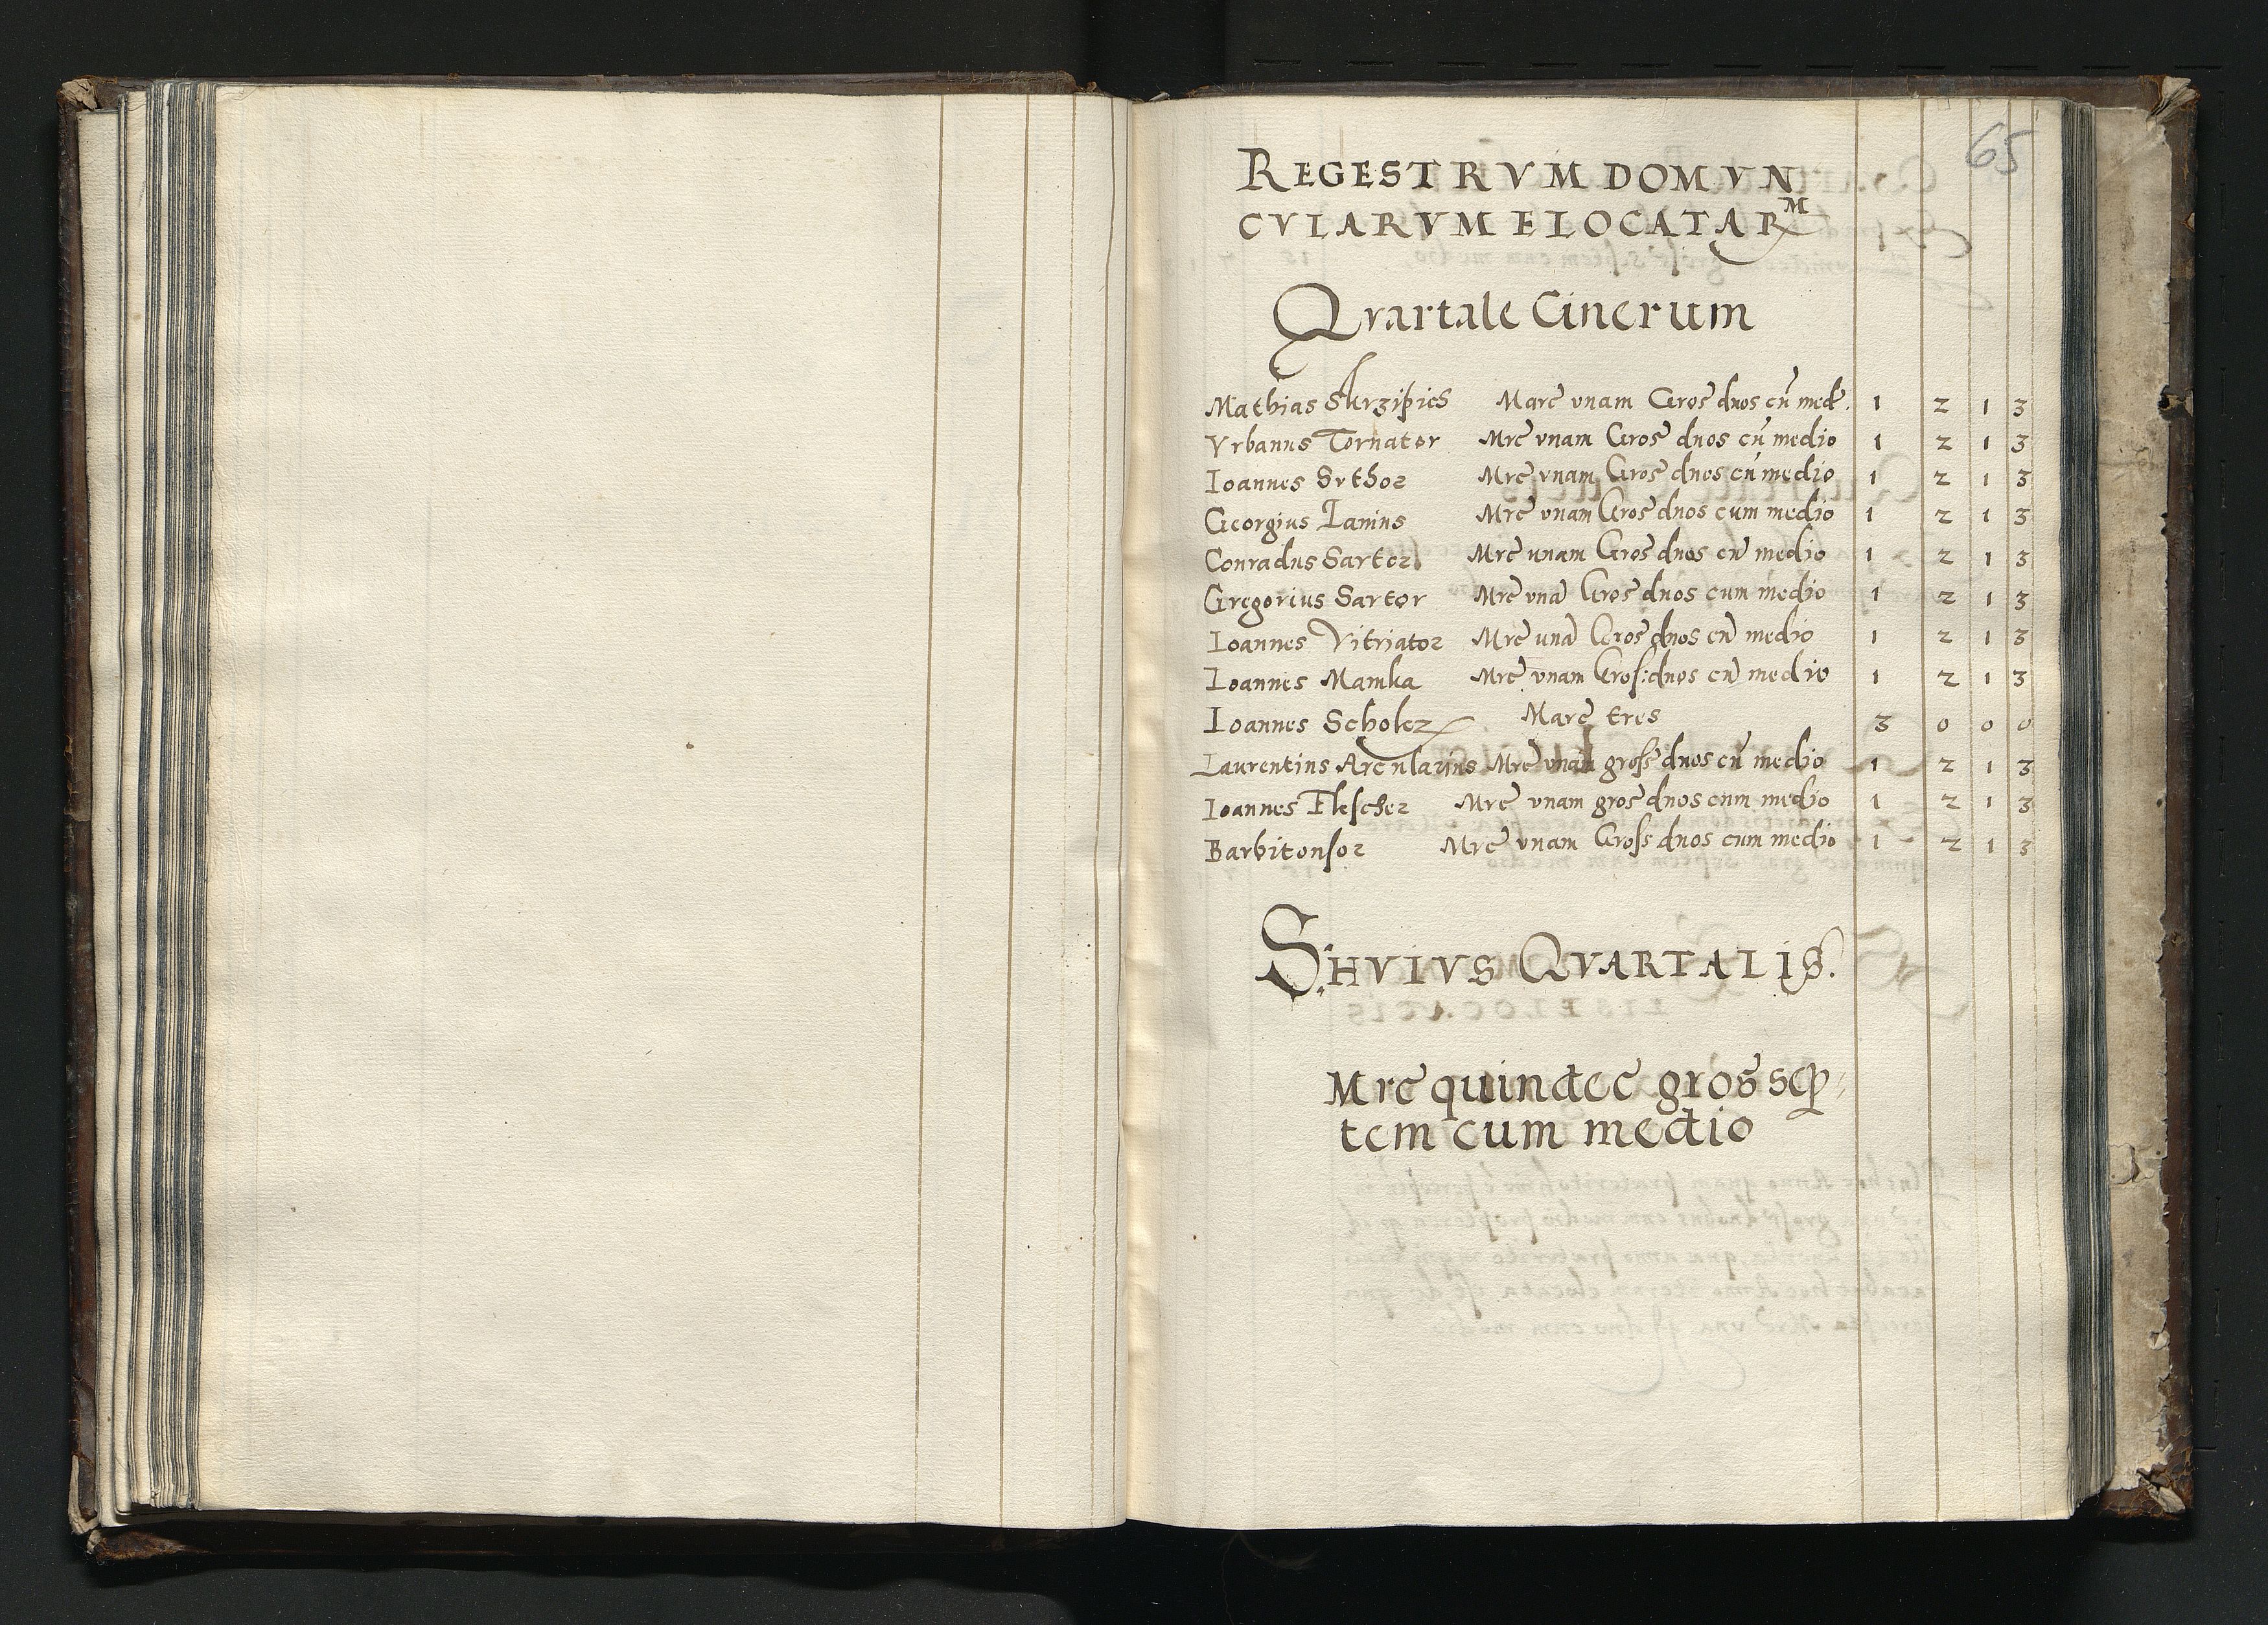 65
REGESTRVM DOMVN
CVLARVM ELOCATAR^M
Qvartale Cinerum
Mathias Skrzipics Marc̃ vnam Gros̃ duos cũ med̃. 1 2 1 3
Vrbanus Tornator Mrc̃ vnam Gros̃ duos cũ medio 1 2 1 3
Ioannes Srthor Mrc̃ vnam Gros̃ duos cũ medio 1 2 1 3
Georgius Ianius Mrc̃ vnam Gros̃ duos cum medio 1 2 1 3
Conradus Sartor Mrc̃ unam Gros̃ duos cũ medio 1 2 1 3
Gregorius Sartor Mrc̃ vnã Gros̃ duos cum medio 1 2 1 3
Ioannes Vitriator Mrc̃ unã Gros̃ duos cũ medio 1 2 1 3
Ioannes Mamka Mrc̃ vnam Gros: duos cũ medio 1 2 1 3
Ioannes Scholcz Marc̃ tres 3 0 0 0
Laurentius Arcularius Mrc̃ vnam gross̃ duos cũ medio 1 2 1 3
Ioannes Flescher Mrc̃ vnam gros̃ duos cum medio 1 2 1 3
Barbitonsor Mrc̃ vnam Gross duos cum medio 1 2 1 3
S: HVIVS QVARTALIS.
Mrc̃ quindec̃ gros̃ sep
tem cum medio